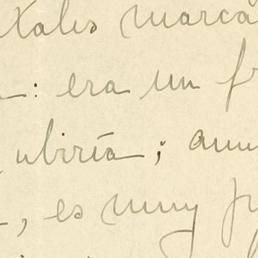 xales marca
: era un f
ubiría; aun
, es muy f